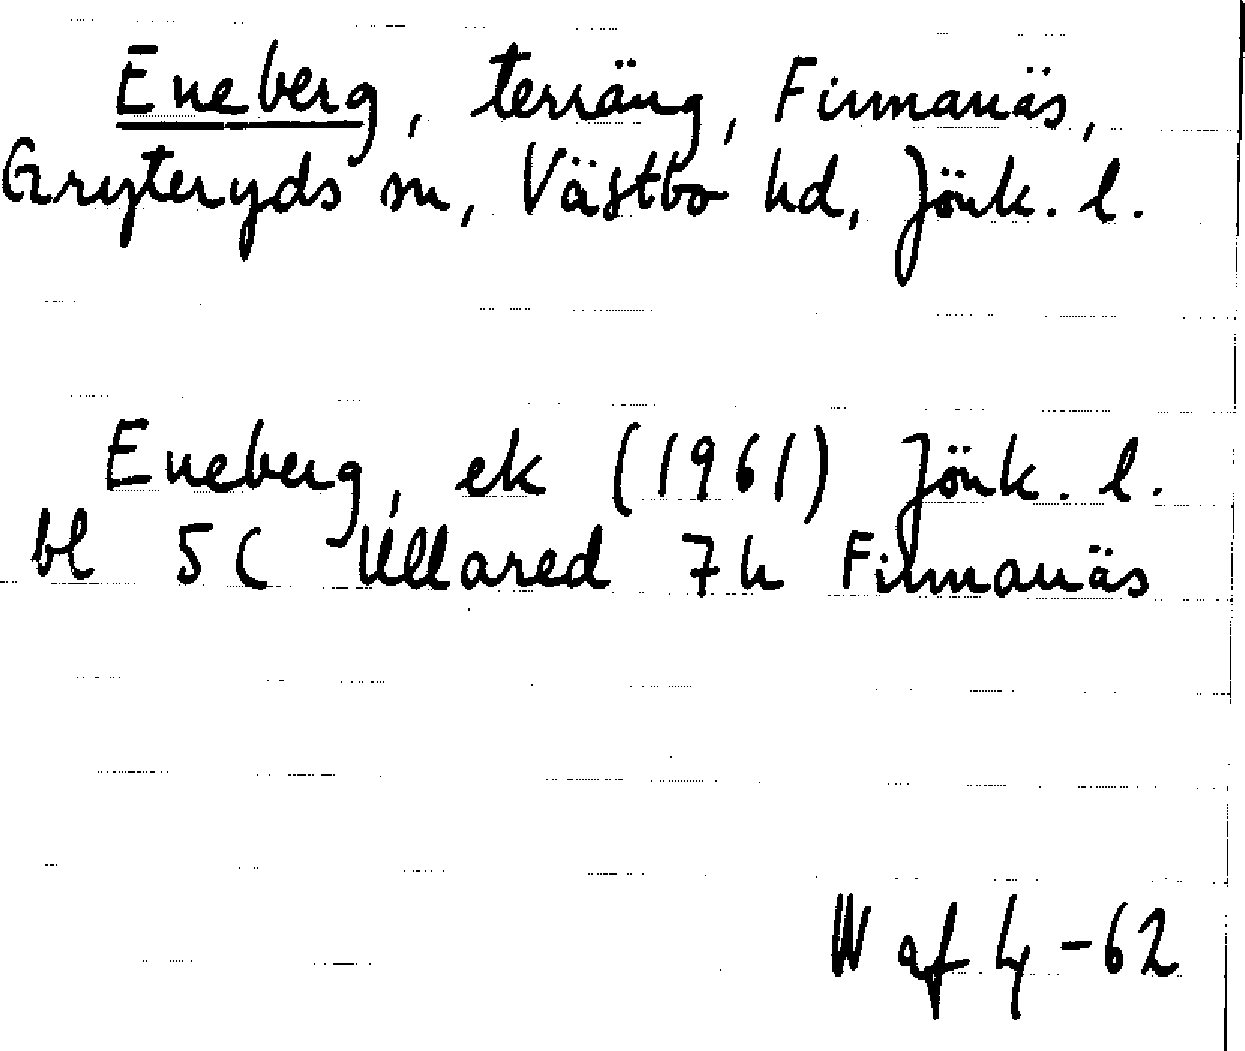 Eneberg, terräng, Finnanäs,
Gryteryds sn, Västbo hd, Jönk. l.
Eneberg, ek (1961) Jönk. l.
bl 5C Ullared 7h Finnanäs
W af -62